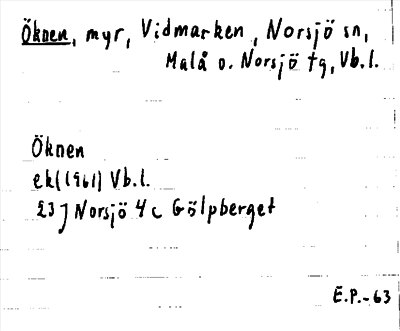 Öknen, myr, Vidmarken, Norsjö sn,
Malå o. Norsjö tg, Vb.l.
Öknen
ek(1961) Vb.l.
23J Norsjö 4c Gölpberget
E.P.-63